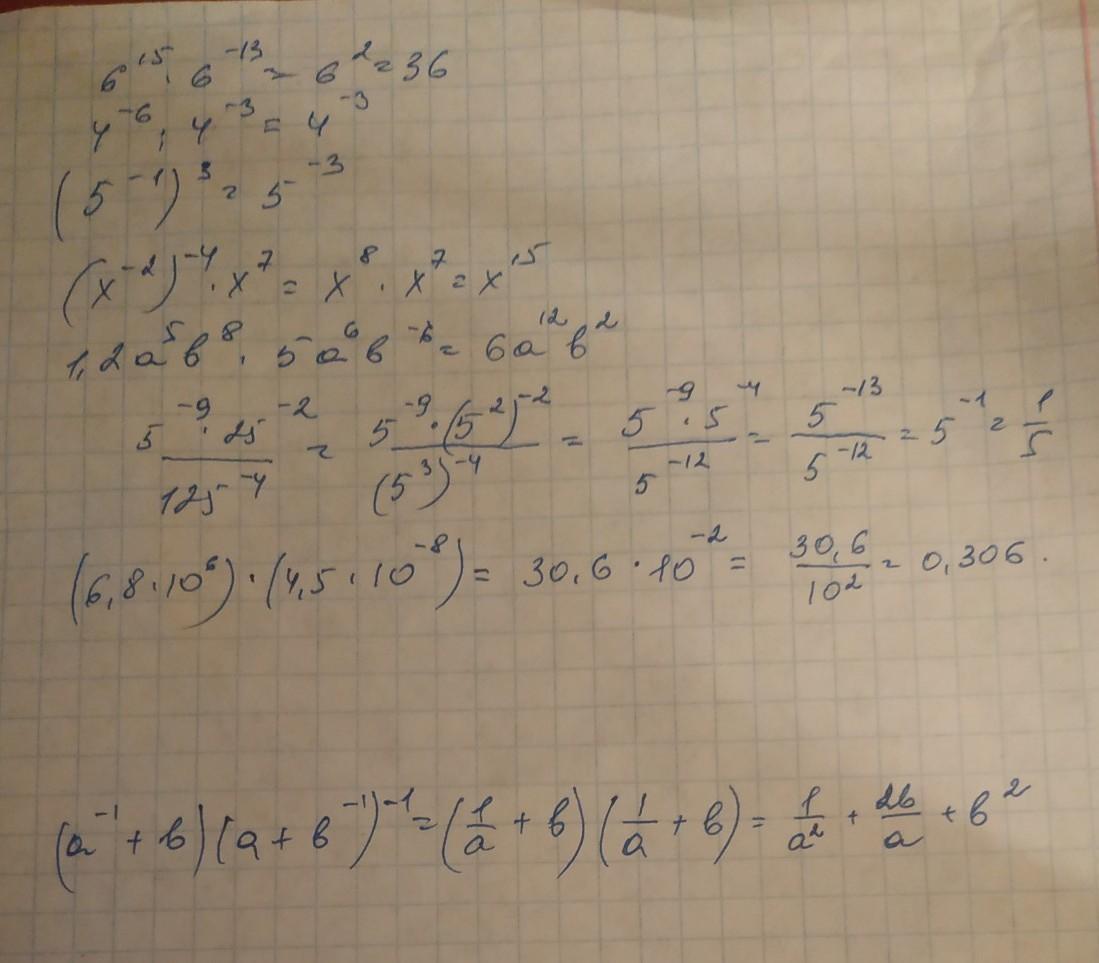 6^15 · 6^-13 = 6^2 = 36
4^-6 : 4^-3 = 4^-3
(5^-1)^3 = 5^-3
(x^-2)^-4 · x^7 = x^8 · x^7 = x^15
1,2a^5b^8 · 5a^6b^-6 = 6a^12b^2
(5^-9 · 25^-2)/(125^-4) = (5^-9 · (5^2)^-2)/((5^3)^-4) = (5^-9 · 5^-4)/(5^-12) = 5^-13/5^-12 = 5^-1 = 1/5
(6,8 · 10^6) · (4,5 · 10^-8) = 30,6 · 10^-2 = 30,6/10^2 = 0,306.
(a^-1 + b)(a + b^-1)^-1 = (1/a + b)(1/a + b) = 1/a^2 + 2b/a + b^2